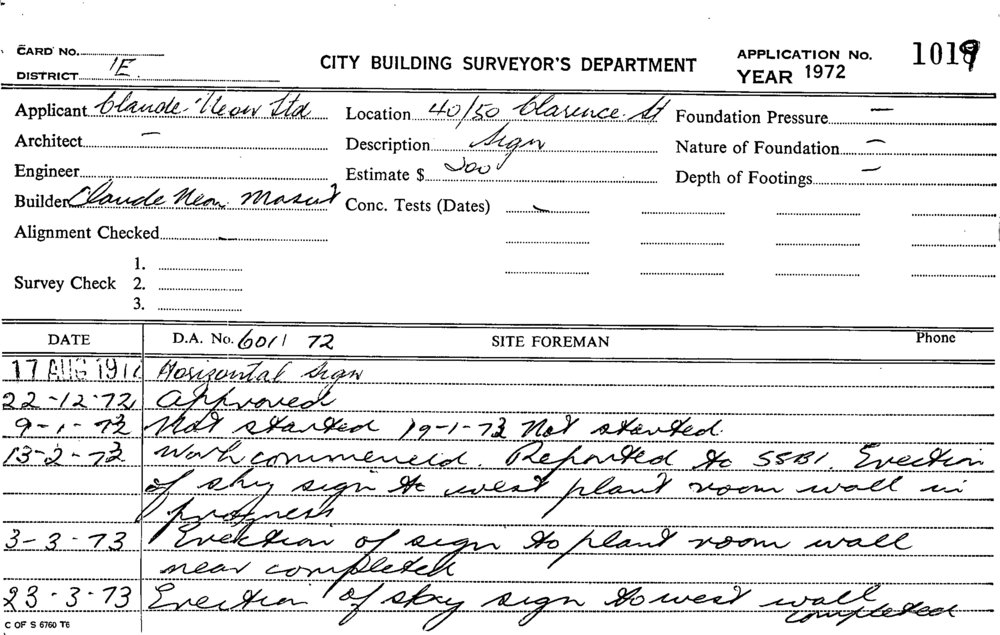 CARD NO.
DISTRICT 1E
CITY BUILDING SURVEYOR'S DEPARTMENT
APPLICATION No. 1019
YEAR 1972
Applicant Claude Neon Ltd
Location 40/50 Clarence St
Foundation Pressure —
Architect —
Description Sign
Nature of Foundation —
Engineer
Estimate $ 200
Depth of Footings —
Builder Claude Neon
Conc. Tests (Dates) -
Alignment Checked -
Survey Check
1.
2.
3.
DATE D.A. No. 6011 72 SITE FOREMAN Phone
17 AUG 197 Horizontal Sign
22-12-72 Approved
9-1-73 Not started 19-1-73 Not started
13-2-73 Work commenceid. Reported to SSBI. Erection
of sky sign to west plant room wall in
progress
3-3-73 Erection of sign to plant room wall
near completed
23-3-73 Erection of sky sign to west wall
completed
C OF S 6760 T6